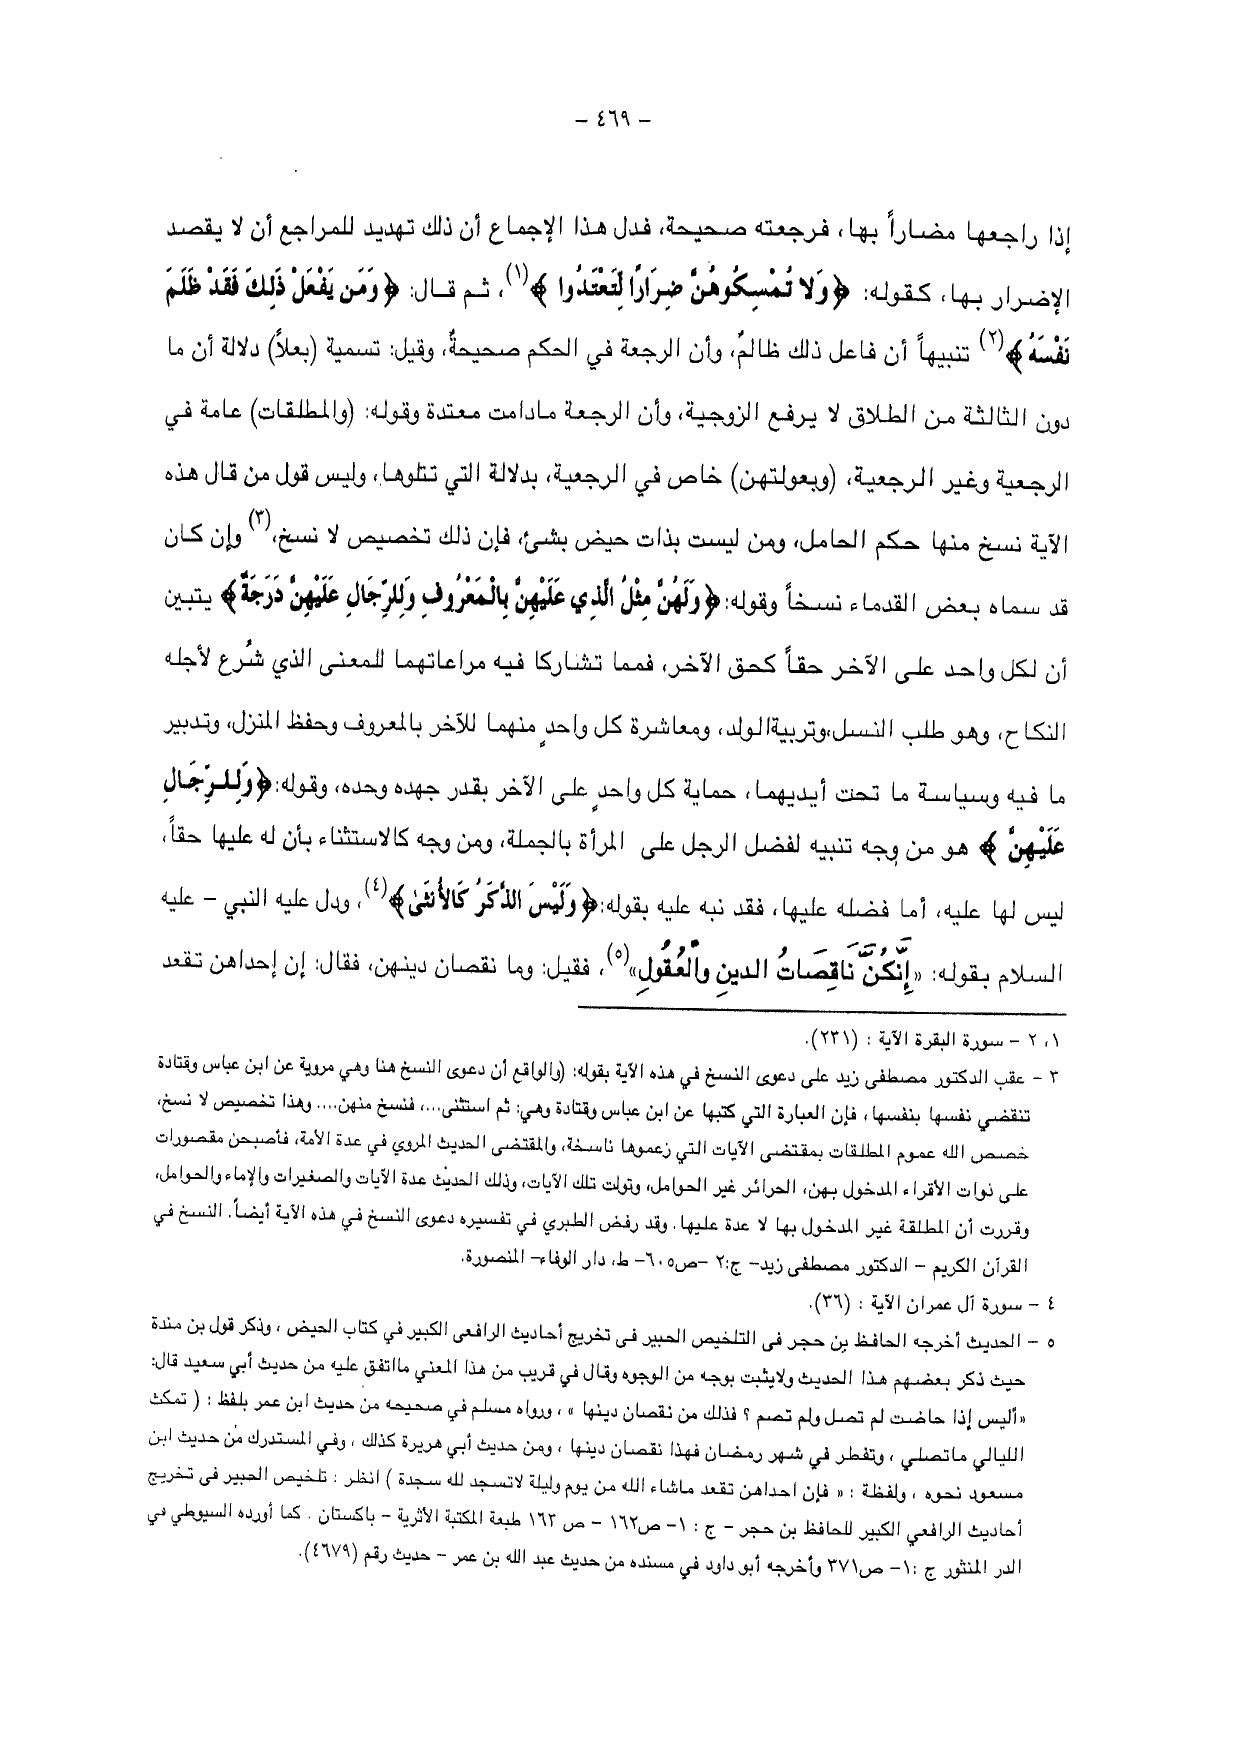 – ٤٦٩ –
إذا راجعها مضاراً بها، فرجعته صحيحة، فدل هذا الإجماع أن ذلك تهديد للمراجع أن لا يقصد
الإضرار بها، كقوله: ﴿وَلَا تُمْسِكُوهُنَّ ضِرَارًا لِّتَعْتَدُوا﴾(١)، ثم قال: ﴿وَمَن يَفْعَلْ ذَلِكَ فَقَدْ ظَلَمَ
نَفْسَهُ﴾(٢) تنبيهاً أن فاعل ذلك ظالمٌ، وأن الرجعة في الحكم صحيحةٌ، وقيل: تسمية (بعلاً) دلالة أن ما
دون الثالثة من الطلاق لا يرفع الزوجية، وأن الرجعة مادامت معتدة وقوله: (والمطلقات) عامة في
الرجعية وغير الرجعية، (وبعولتهن) خاص في الرجعية، بدلالة التي تتلوها، وليس قول من قال هذه
الآية نسخ منها حكم الحامل، ومن ليست بذات حيض بشئ، فإن ذلك تخصيص لا نسخ،(٣) وإن كان
قد سماه بعض القدماء نسخاً وقوله: ﴿وَلَهُنَّ مِثْلُ الَّذِي عَلَيْهِنَّ بِالْمَعْرُوفِ وَلِلرِّجَالِ عَلَيْهِنَّ دَرَجَةٌ﴾ يتبين
أن لكل واحد على الآخر حقاً كحق الآخر، فمما تشاركا فيه مراعاتهما للمعنى الذي شُرع لأجله
النكاح، وهو طلب النسل،وتربيةالولد، ومعاشرة كل واحدٍ منهما للآخر بالمعروف وحفظ المنزل، وتدبير
ما فيه وسياسة ما تحت أيديهما، حماية كل واحدٍ على الآخر بقدر جهده وحده، وقوله: ﴿وَلِلرِّجَالِ
عَلَيْهِنَّ﴾ هو من وجه تنبيه لفضل الرجل على المرأة بالجملة، ومن وجه كالاستثناء بأن له عليها حقاً،
ليس لها عليه، أما فضله عليها، فقد نبه عليه بقوله: ﴿وَلَيْسَ الذَّكَرُ كَالأُنثَىٰ﴾(٤)، ودل عليه النبي – عليه
السلام بقوله: «إِنَّكُنَّ نَاقِصَاتُ الدينِ والْعُقُولِ»(٥)، فقيل: وما نقصان دينهن، فقال: إن إحداهن تقعد
١، ٢ – سورة البقرة الآية : (٢٣١).
٣ – عقب الدكتور مصطفى زيد على دعوى النسخ في هذه الآية بقوله: (والواقع أن دعوى النسخ هنا وهي مروية عن ابن عباس وقتادة
تنقضي نفسها بنفسها، فإن العبارة التي كتبها عن ابن عباس وقتادة وهي: ثم استثنى...، فنسخ منهن.... وهذا تخصيص لا نسخ،
خصص الله عموم المطلقات بمقتضى الآيات التي زعموها ناسخة، والمقتضى الحديث المروي في عدة الأمة، فأصبحن مقصورات
على ذوات الأقراء المدخول بهن، الحرائر غير الحوامل، وتولت تلك الآيات، وذلك الحديث عدة الآيات والصغيرات والإماء والحوامل،
وقررت أن المطلقة غير المدخول بها لا عدة عليها. وقد رفض الطبري في تفسيره دعوى النسخ في هذه الآية أيضاً. النسخ في
القرآن الكريم – الدكتور مصطفى زيد– ج:٢ –ص٦٠٥– ط، دار الوفاء– المنصورة.
٤ – سورة آل عمران الآية : (٣٦).
٥ – الحديث أخرجه الحافظ بن حجر فى التلخيص الحبير فى تخريج أحاديث الرافعى الكبير في كتاب الحيض ، وذكر قول بن مندة
حيث ذكر بعضهم هذا الحديث ولايثبت بوجه من الوجوه وقال في قريب من هذا المعني مااتفق عليه من حديث أبي سعيد قال:
«أليس إذا حاضت لم تصل ولم تصم ؟ فذلك من نقصان دينها » ، ورواه مسلم في صحيحه من حديث ابن عمر بلفظ : ( تمكث
الليالي ماتصلي ، وتفطر في شهر رمضان فهذا نقصان دينها ، ومن حديث أبي هريرة كذلك ، وفي المستدرك من حديث ابن
مسعود نحوه ، ولفظة : « فإن احداهن تقعد ماشاء الله من يوم وليلة لاتسجد لله سجدة ) انظر : تلخيص الحبير فى تخريج
أحاديث الرافعي الكبير للحافظ بن حجر – ج : ١– ص١٦٢ – ص ١٦٣ طبعة المكتبة الأثرية – باكستان . كما أورده السيوطي في
الدر المنثور ج :١– ص٣٧١ وأخرجه أبو داود في مسنده من حديث عبد الله بن عمر – حديث رقم (٤٦٧٩).